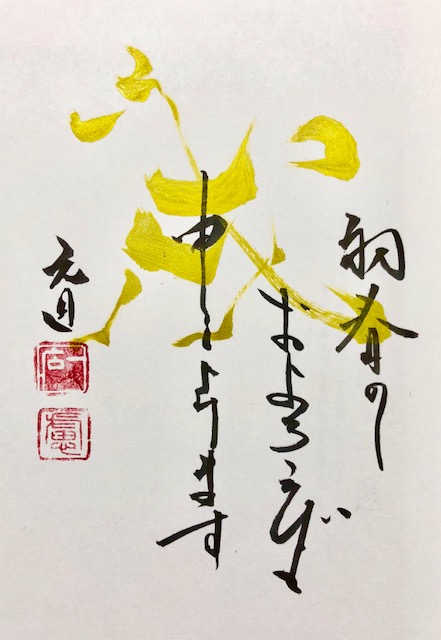 初春の
およろこびを
申し上げます
元旦